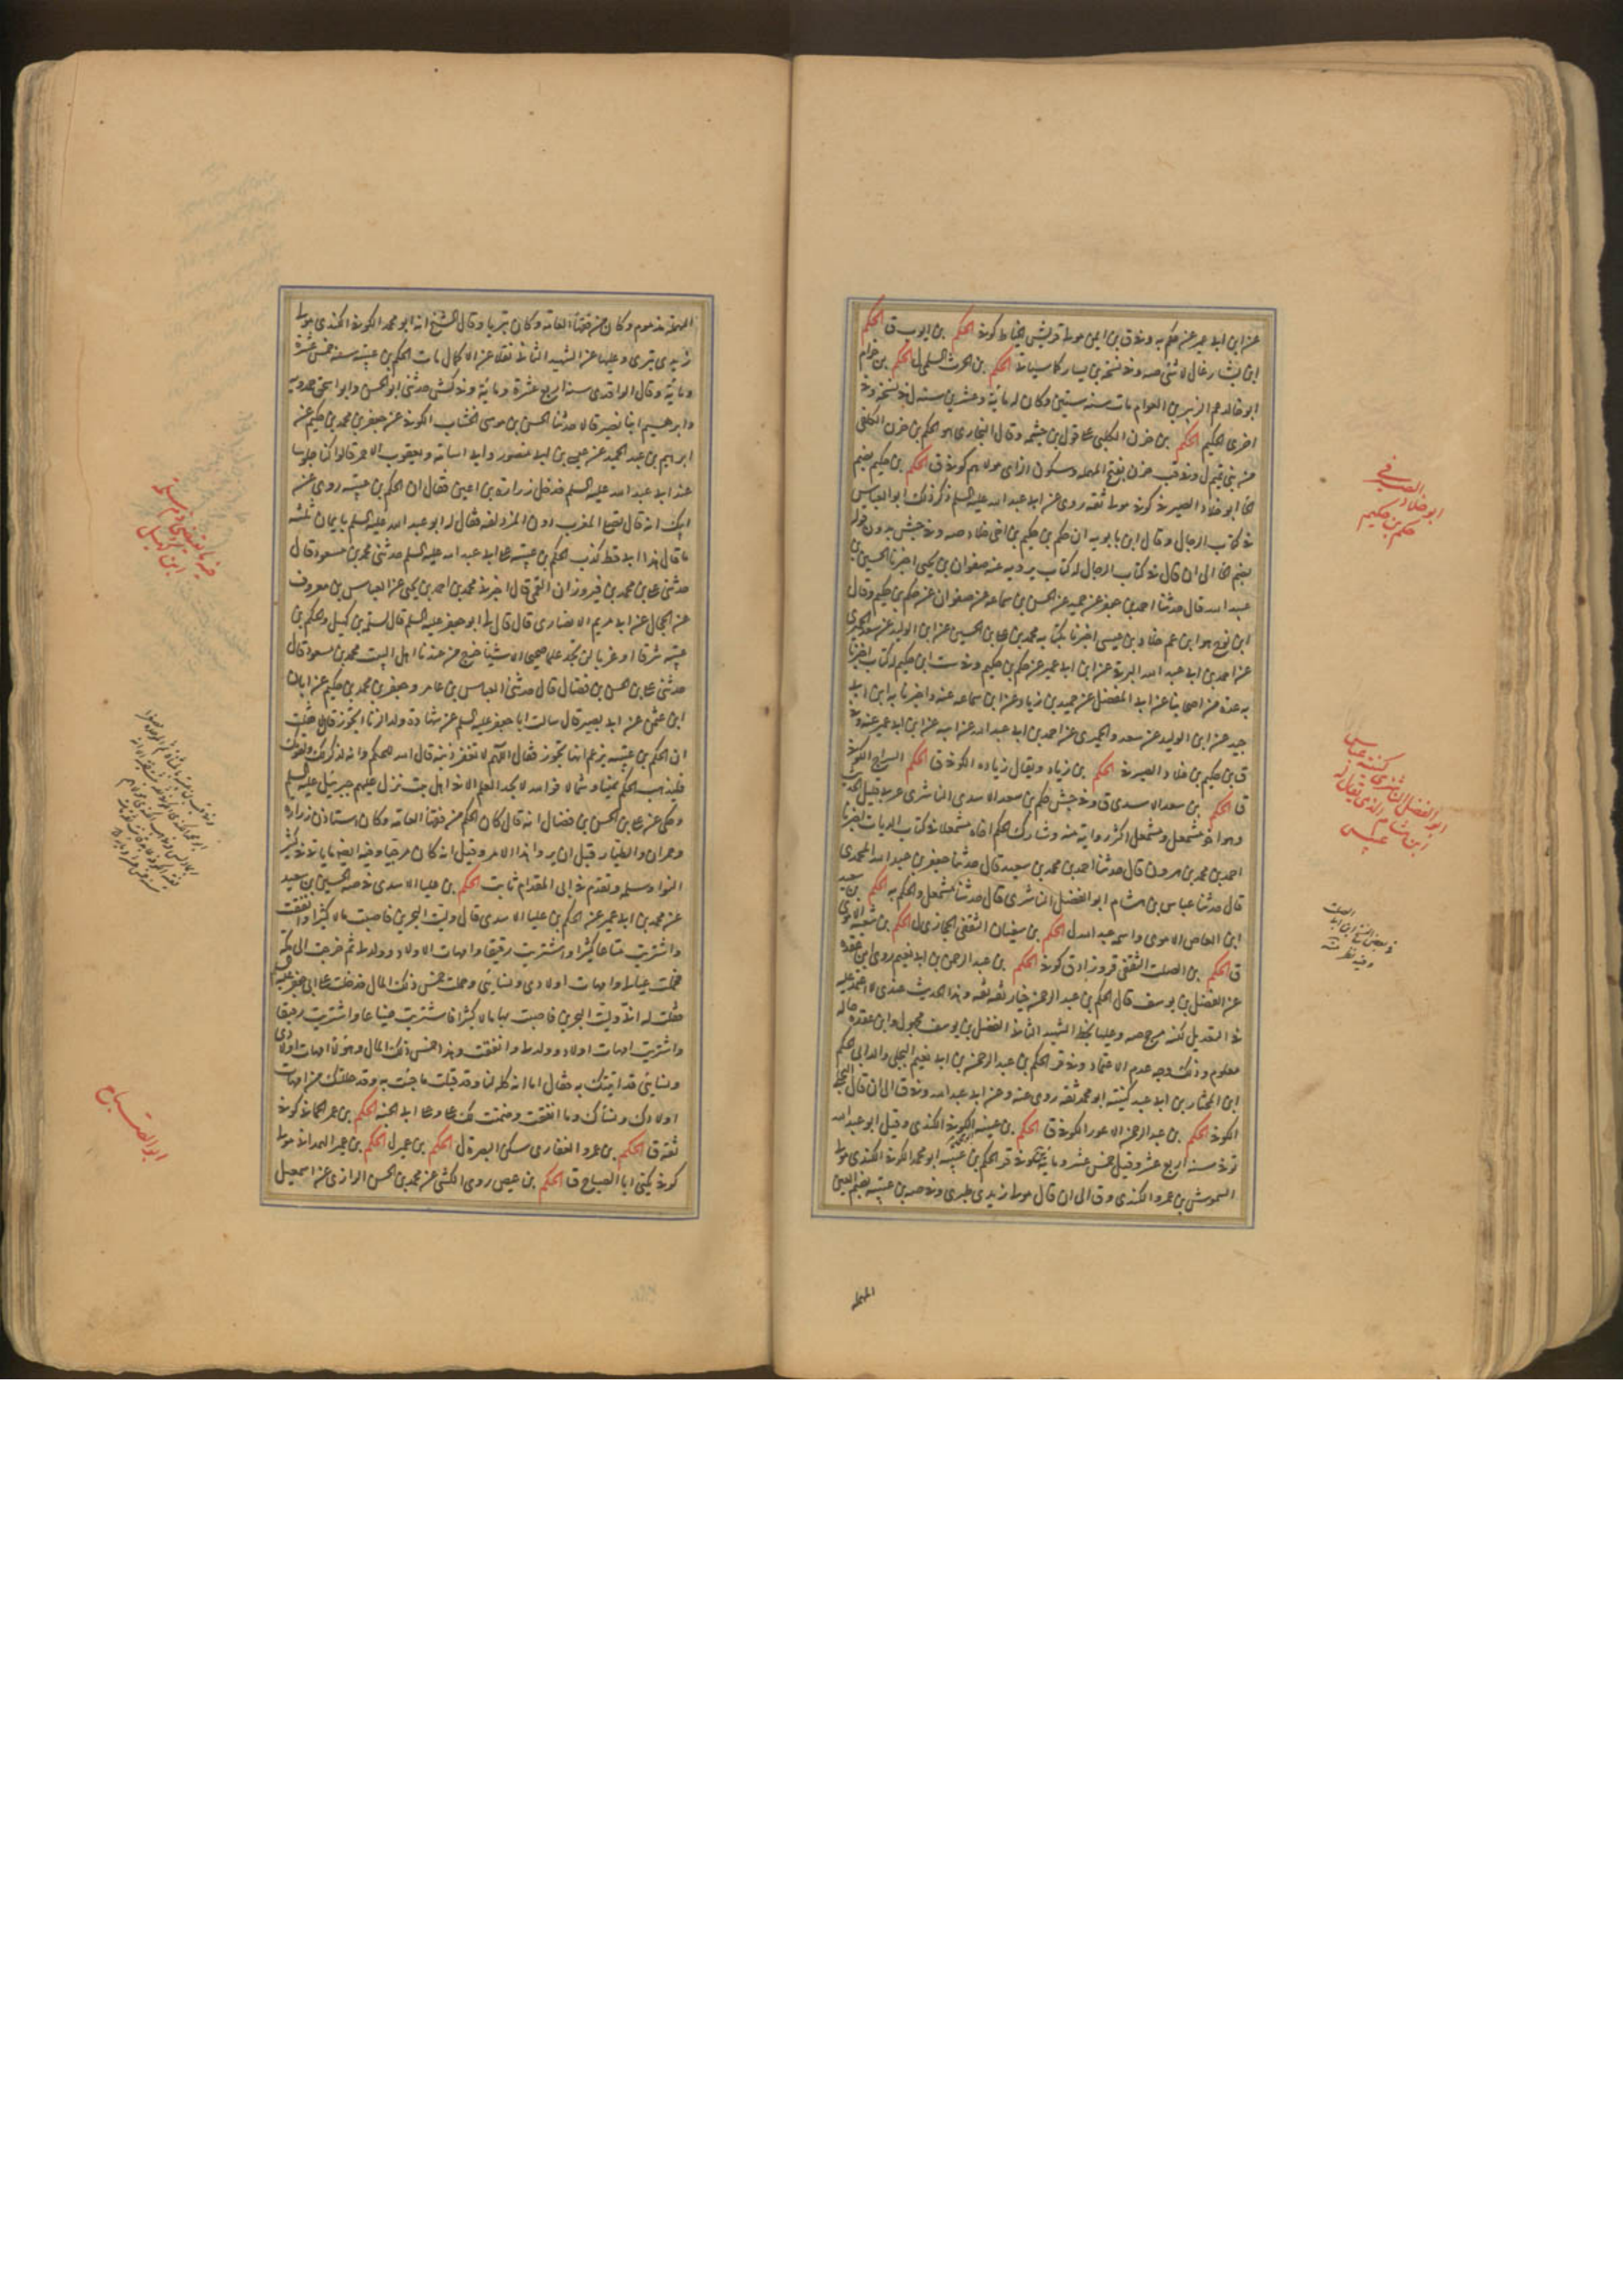 عن ابن ابي عمير عنه حكم به وفي ق بن ايمن مولى قريش الخياط كوفي الحكم بن ايوب ق الحكم
ابن بشار غال لا شئ صه وفي نسخة بن يسار كما سيأتي الحكم بن الحرث السلمي ل الحكم بن حزام
ابو خالد عم الزبير بن العوام مات سنة ستين وكان له مائة وعشرين سنة ل في نسخة وفي
اخرى الحكيم الحكم بن حزن الكلبي على قول بن خيثمه وقال البخاري هو الحكم بن حزن الكلفي
من بني تميم ل وفي قب حزن بفتح المهملة وسكون الزاى الحكم بن حكيم بضم
الحا ابو خلاد الصيرفي كوفي مولى ثقه روى عن ابي عبد الله عليه السلم ذكر ذلك ابو العباس
في كتاب الرجال وقال ابن بابويه ان حكم بن حكيم بن اخي خلاد صه وفي جش بدون قوله
بضم الحا الى ان قال في كتاب الرجال له كتاب يرويه عنه صفوان بن يحيى اخبرنا الحسين بن
عبيد الله قال حدثنا احمد بن جعفر عن حميد عن الحسن بن سماعه عن صفوان عن حكم بن حكيم وقال
ابن نوح هو ابن عم خلاد بن عيسى اخبرنا بكتابه محمد بن على بن الحسين عن ابن الوليد عن سعد والحميرى
عن احمد بن ابي عبد الله البرقي عن ابن ابي عمير عن حكم بن حكيم وفي ست ابن حكيم له كتاب اخبرنا
به عدة من اصحابنا عن ابي المفضل عن حميد بن زياد عن ابن سماعه عنه واخبرنا به ابن ابي
جيد عن ابن الوليد عن سعد والحميرى عن احمد بن ابي عبد الله عن ابيه عن ابن ابي عمير عنه وفي
ق بن حكيم بن خلاد الصيرفي الحكم بن زياد ويقال زياده الكوفي ق الحكم السراج الكوفي
ق الحكم بن سعد الاسدى ق وفي جش حكم بن سعد الاسدى الناشرى عربى قليل الحديث
وهو اخو مشمعل ومشمعل اكثر رواية منه وشارك الحكم اخاه مشمعلا في كتاب الديات اخبرنا
احمد بن محمد بن هرون قال حدثنا احمد بن محمد بن سعيد قال حدثنا جعفر بن عبد الله المحمدى
قال حدثنا عباس بن هشام ابو الفضل الناشرى قال حدثنا مشمعل والحكم به الحكم بن سعيد
ابن العاص الاموى واسمه عبد الله ل الحكم بن سفيان الثقفى الحجازى ل الحكم بن شعبه الاموى
ق الحكم بن الصلت الثقفى قر وزاد ق كوفي الحكم بن عبد الرحمن بن ابي نعيم روى ابن عقده
عن الفضل بن يوسف قال الحكم بن عبد الرحمن خيار ثقه ثقه وهذا الحديث عندى لا اعتمد عليه
في التعديل لكنه مرجح صه وعليها بخط الشهيد الثاني الفضل بن يوسف مجهول وابن عقده حاله
معلوم وذلك وجه عدم الاعتماد وفي قر الحكم بن عبد الرحمن بن ابي نعيم البجلى والد ابي حكم
ابن المختار بن ابي عبيد كنيته ابو محمد ثقه روى عنه وعن ابي عبد الله وفي ق الى ان قال البجلى
الكوفي الحكم بن عبد الرحمن الاعور الكوفي ق الحكم بن عتيبه الكوفي الكندى وقيل ابو عبد الله
توفي سنة اربع عشر وقيل خمس عشر ومائة وفي قر الحكم بن عتيبه ابو محمد الكوفي الكندى مولى
الشموس بن عمرو الكندى وق الى ان قال مولى زيدى بترى وفي صه بن عتيبه بضم العين
المهملة
ابو خلاد الصيرفي
حكم بن حكيم
ابو الفضل الناشرى كنيته عباس
ابن هشام الذى يقال له
عبيس
في بعض النسخ ابن ابي الصلت
وفيه نظر منه
المهملة مذموم وكان من فقهاء العامة وكان بتريا وقال الشيخ انه ابو محمد الكوفي الكندى مولى
زيدى بترى وعليها عن الشهيد الثاني نقلا عن الاكمال مات الحكم بن عتيبه سنة خمس عشرة
ومائة وقال الواقدى سنة اربع عشرة ومائة وفي كش حدثني ابو الحسن وابو اسحق حمدويه
وابرهيم ابنا نصير قالا حدثنا الحسن بن موسى الخشاب الكوفي عن جعفر بن محمد بن حكيم عن
ابرهيم بن عبد الحميد عن عيسى بن ابي منصور وابي اسامه ويعقوب الاحمر قالوا كنا جلوسا
عند ابي عبد الله عليه السلم فدخل زراره بن اعين فقال ان الحكم بن عتيبه روى عن
ابيك انه قال تصلى المغرب دون المزدلفه فقال له ابو عبد الله عليه السلم بايمان ثلثه
ما قال هذا ابي قط كذب الحكم بن عتيبه على ابي عبد الله عليه السلم حدثني محمد بن مسعود قال
حدثني على بن محمد بن فيروزان القمى قال اخبرني محمد بن احمد بن يحيى عن العباس بن معروف
عن الحجال عن ابي مريم الانصارى قال قال لى ابو جعفر عليه السلم قال لسلمه بن كهيل والحكم بن
عتيبه شرقا او غربا لن تجدا علما صحيحا الا شيئا خرج من عندنا اهل البيت محمد بن مسعود قال
حدثني على بن الحسن بن فضال قال حدثني العباس بن عامر وجعفر بن محمد بن حكيم عن ابان
ابن عثمن عن ابي بصير قال سالت ابا جعفر عليه السلم عن شهادة ولد الزنا اتجوز قال لا فقلت
ان الحكم بن عتيبه يزعم انها تجوز فقال اللهم لا تغفر ذنبه قال الله للحكم وانه لذكر لك ولقومك
فليذهب الحكم يمينا وشمالا فوالله لا يجد العلم الا في اهل بيت نزل عليهم جبرئيل عليه السلم
وحكى عن على بن الحسن بن فضال انه قال كان الحكم من فقهاء العامه وكان استاذ زراره
وحمران والطيار قبل ان يروا هذا الامر وقيل انه كان مرجيا وفيه ايضا ما ياتي في كثير
النوا وسلمه وتقدم في ابي المقدام ثابت الحكم بن عليا الاسدى في صه الحسين بن سعيد
عن محمد بن ابي عمير عن الحكم بن عليا الاسدى قال وليت البحرين فاصبت مالا كثيرا وانفقت
واشتريت متاعا كثيرا واشتريت رقيقا وامهات الاولاد وولد لى ثم خرجت الى مكه
فحملت عيالى وامهات اولادى ونسائى وحملت خمس ذلك المال فدخلت على ابي جعفر عليه السلم
فقلت له اني وليت البحرين فاصبت بها مالا كثيرا فاشتريت ضياعا واشتريت رقيقا
واشتريت امهات اولاد وولد لى وانفقت وهذا خمس ذلك المال وهؤلاء امهات اولادى
ونسائى قد اتيتك به فقال اما انه كله لنا وقد قبلت ما جئت به وقد حللتك من امهات
اولادك ونسائك وما انفقت وضمنت لك على وعلى ابي الجنه الحكم بن عمر الحماني كوفي
ثقه ق الحكم بن عمرو الغفارى سكن البصره ل الحكم بن عمير ل الحكم بن عمير الهمداني مولى
كوفي يكنى ابا الصباح ق الحكم بن عيص روى الكشى عن محمد بن الحسن الرازى عن اسمعيل
ابن كهيل
ابو الصباح